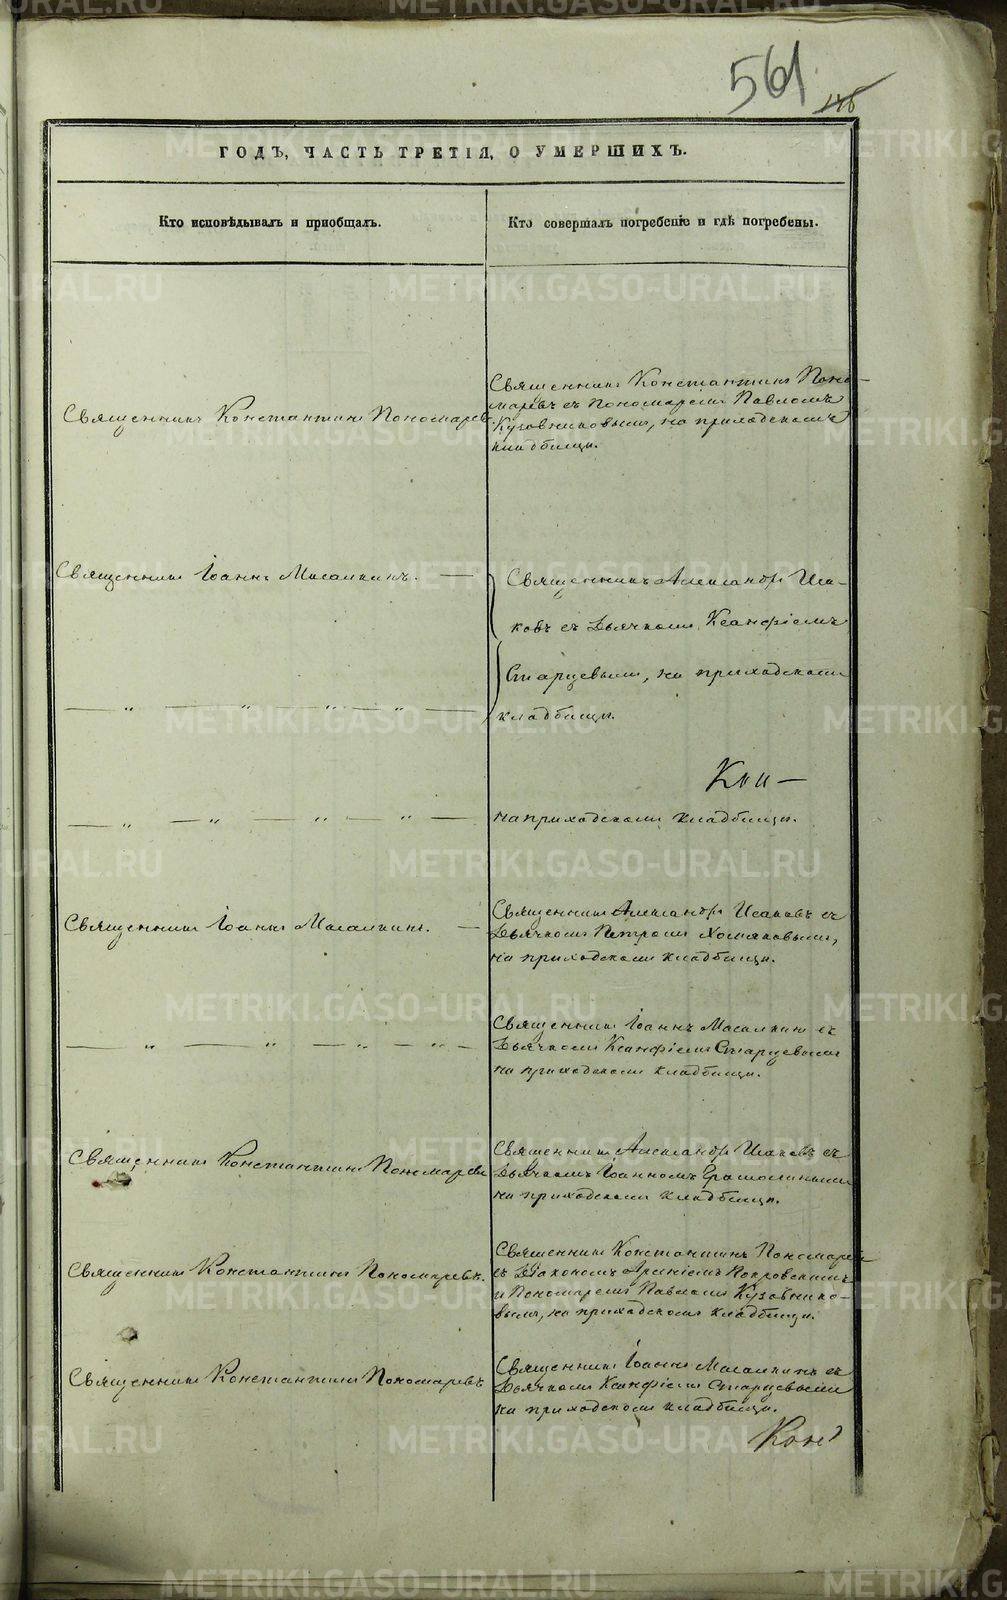 561
ГОДЪ, ЧАСТЬ ТРЕТІЯ, О УМЕРШИХЪ.
Кто исповѣдывалъ и пріобщалъ.
Кто совершалъ погребеніе и гдѣ погребены.
Священникъ Константинъ Пономаревъ.
Священникъ Константинъ Поно-
маревъ съ Пономаремъ Павломъ
Кузовниковымъ, на приходскомъ
кладбищѣ.
Священникъ Іоаннъ Масалкинъ. —
Священникъ Александръ Иса-
ковъ съ Дьячкомъ Ксанфіемъ
Старцевымъ, на приходскомъ
кладбищѣ.
— „ — „ — „ — „ —
— „ — „ — „ — „ —
на приходскомъ кладбищѣ.
Священникъ Іоаннъ Масалкинъ. —
Священникъ Александръ Исаковъ съ
Дьячкомъ Петромъ Хомяковымъ,
на приходскомъ кладбищѣ.
— „ — „ — „ — „ —
Священникъ Іоаннъ Масалкинъ съ
Дьячкомъ Ксанфіемъ Старцевымъ
на приходскомъ кладбищѣ.
Священникъ Константинъ Пономаревъ
Священникъ Александръ Исаковъ съ
Дьячкомъ Іоанномъ
на приходскомъ кладбищѣ.
Священникъ Константинъ Пономаревъ.
Священникъ Константинъ Пономаревъ
съ Діакономъ Арсеніемъ Покровскимъ
и Пономаремъ Павломъ Кузовнико-
вымъ, на приходскомъ кладбищѣ.
Священникъ Константинъ Пономаревъ
Священникъ Іоаннъ Масалкинъ съ
Дьячкомъ Ксанфіемъ Старцевымъ
на приходскомъ кладбищѣ.
METRIKI.GASO-URAL.RU